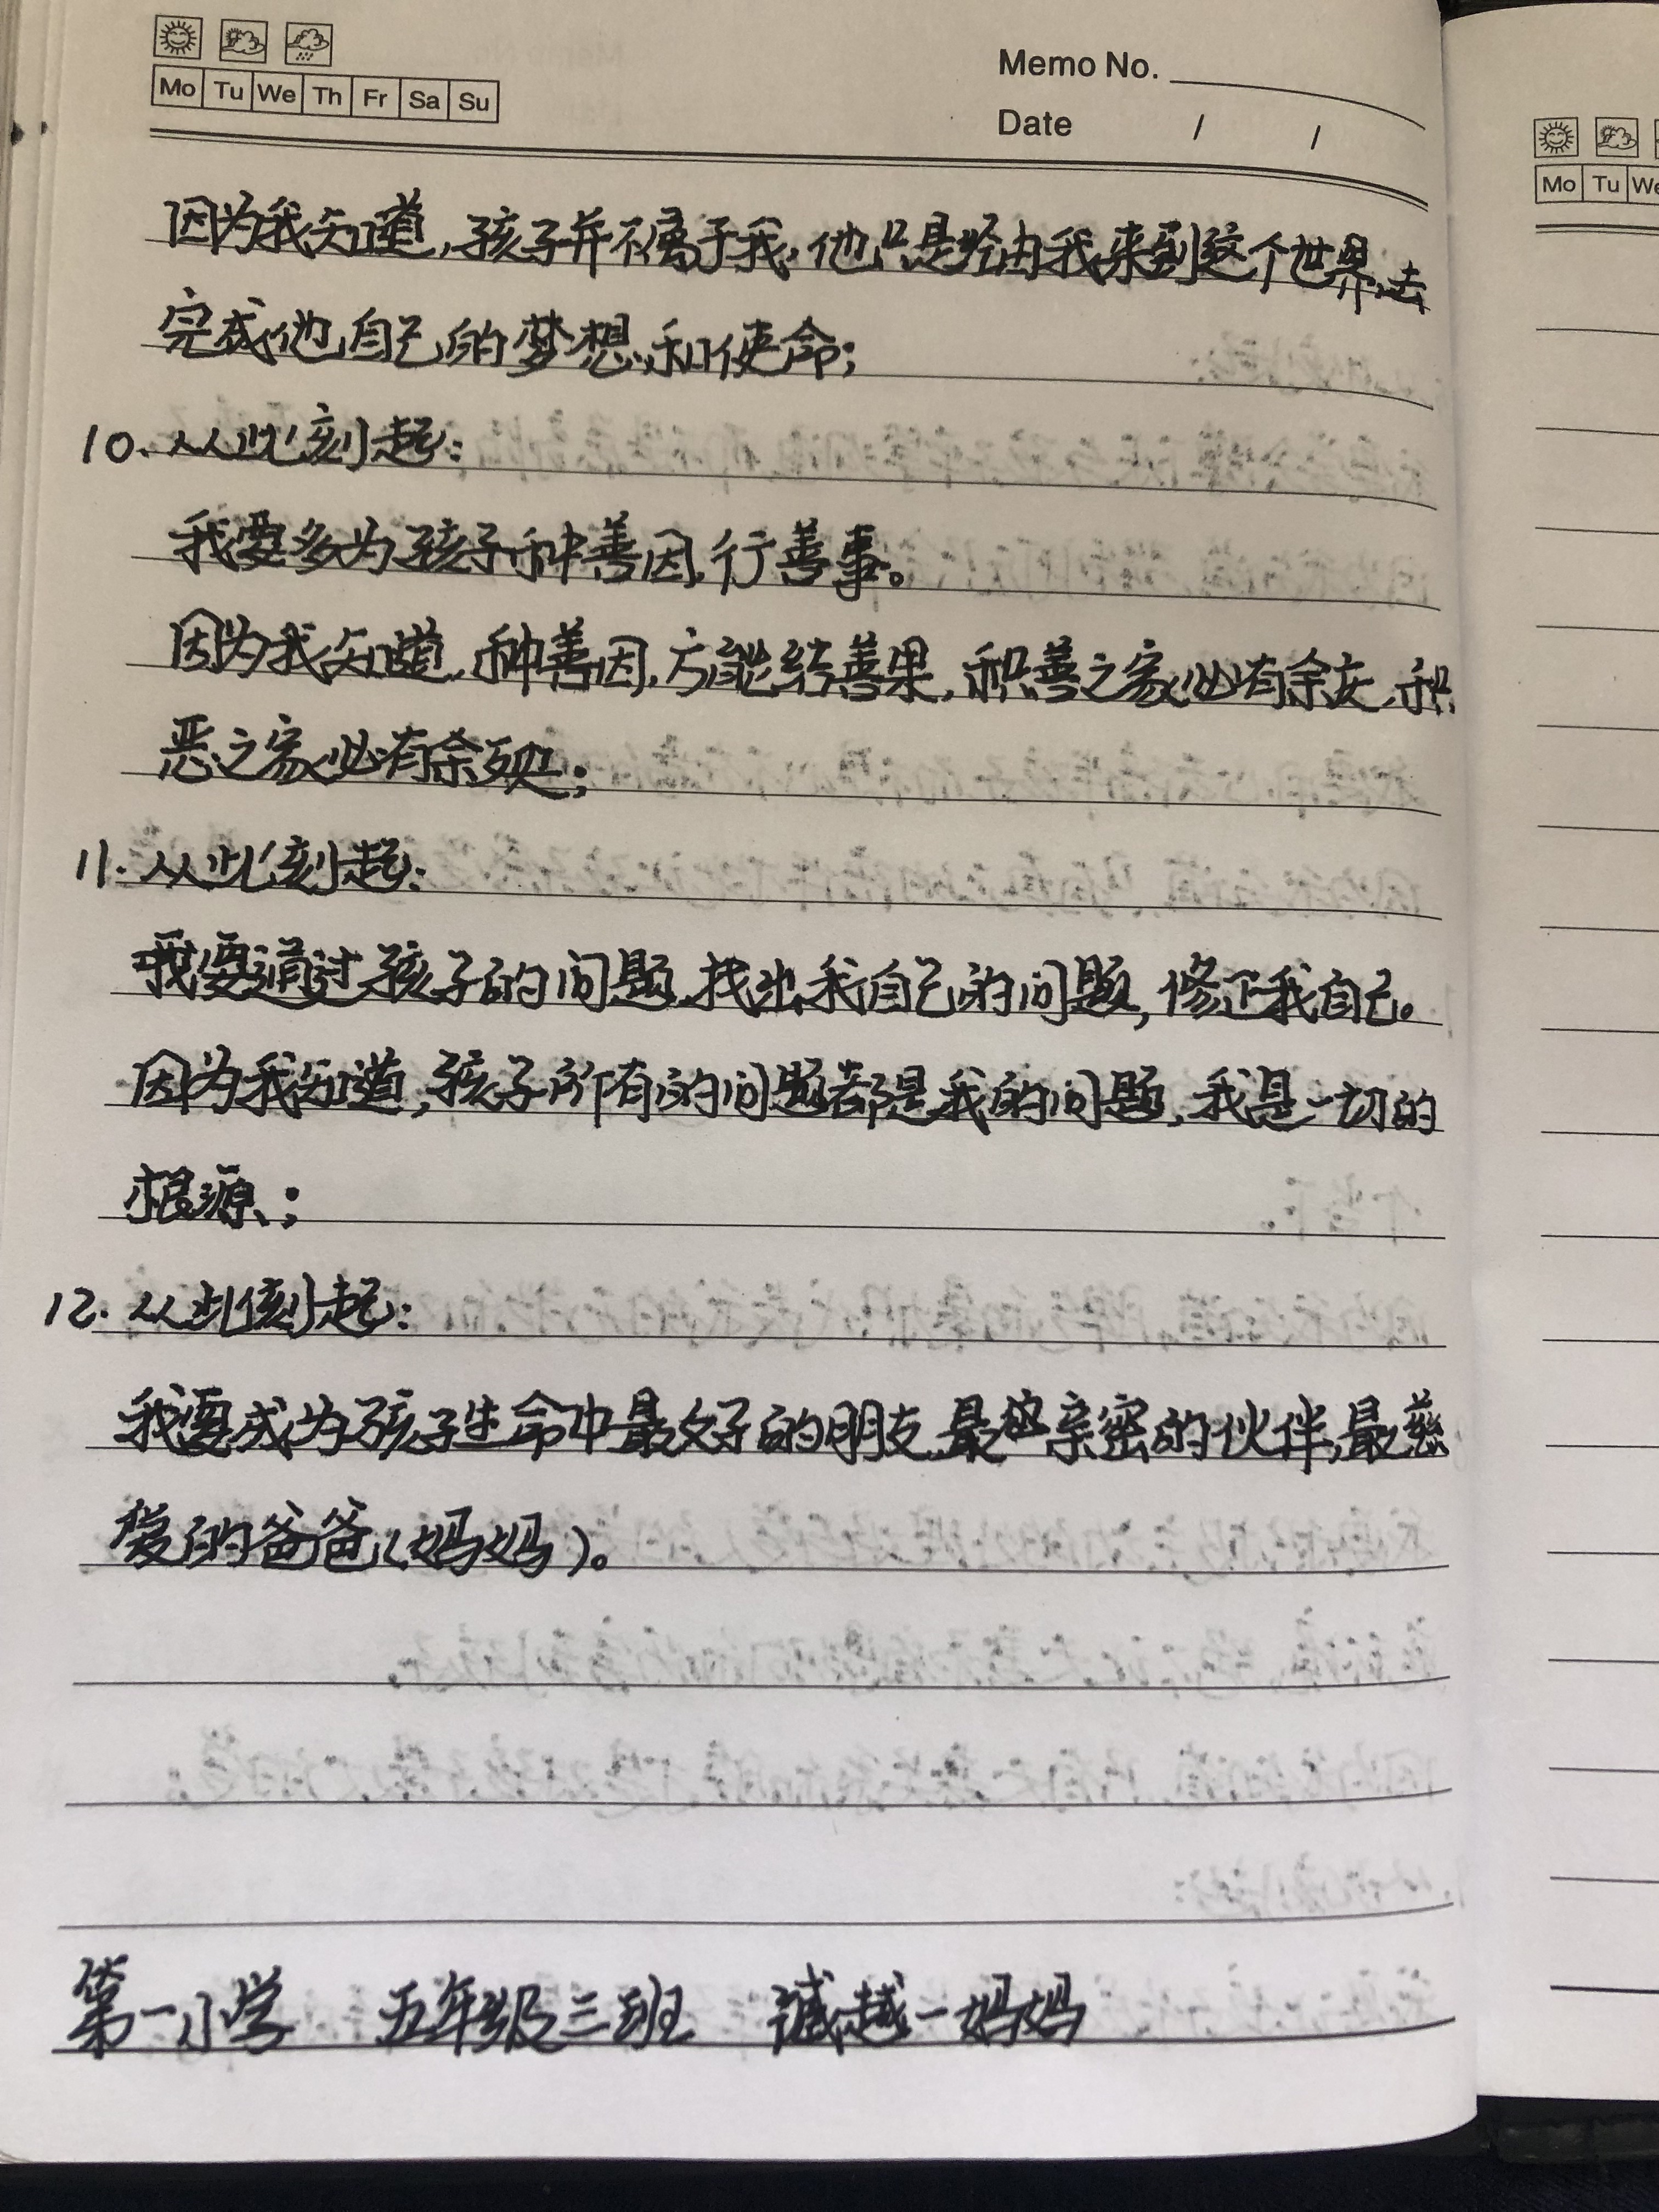 Mo Tu We Th Fr Sa Su
Memo No.
Date / /
因为我知道,孩子并不属于我,他只是经由我来到这个世界,去
完成他自己的梦想和使命;
10.从此刻起:
我要多为孩子种善因,行善事。
因为我知道,种善因,方能结善果,积善之家必有余庆,积
恶之家必有余殃;
11.从此刻起:
我要通过孩子的问题,找出我自己的问题,修正我自己。
因为我知道,孩子所有的问题都是我的问题,我是一切的
根源;
12.从此刻起:
我要成为孩子生命中最好的朋友,最亲密的伙伴,最慈
爱的爸爸(妈妈)。
第一小学 五年级三班 越一妈妈
Mo Tu We